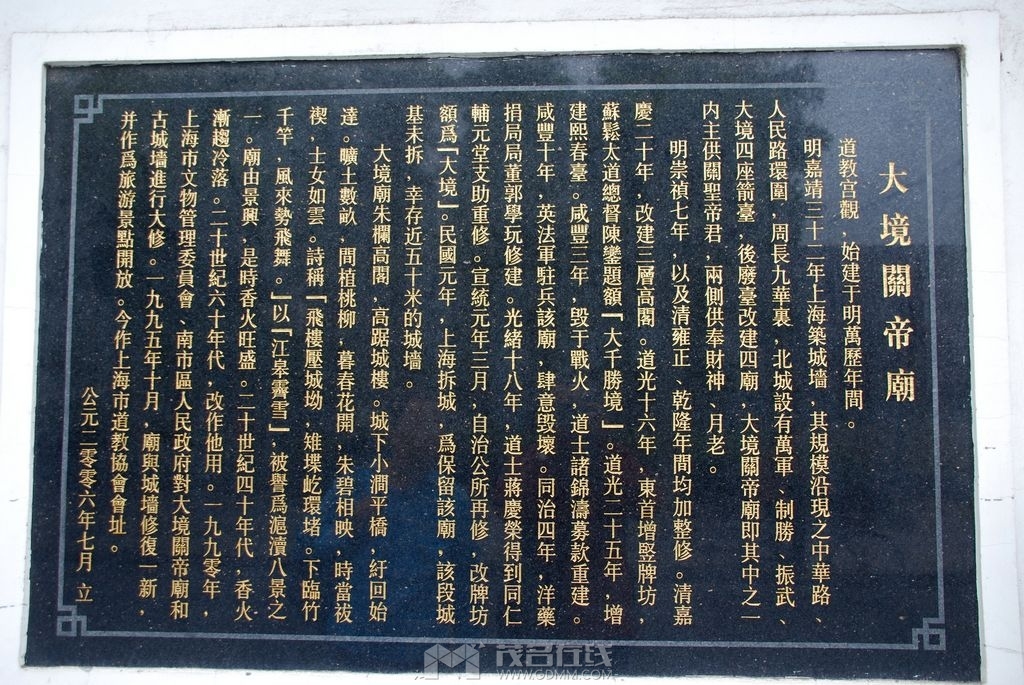 大境關帝廟
道教宫觀，始建于明萬歷年間。
明嘉靖三十二年上海築城墻，其規模沿現之中華路、
人民路環圍，周長九華裏，北城設有萬軍、制勝、振武、
大境四座箭臺，後廢臺改建四廟，大境關帝廟即其中之一
内主供關聖帝君，兩側供奉財神、月老。
明崇禎七年，以及清雍正、乾隆年間均加整修。清嘉
慶二十年，改建三層高閣。道光十六年，東首增竪牌坊，
蘇鬆太道總督陳鑾題額「大千勝境」。道光二十五年，增
建熙春臺。咸豐三年，毁于戰火，道士諸錦濤募款重建。
咸豐十年，英法軍駐兵該廟，肆意毁壞。同治四年，洋藥
捐局局董郭學玩修建。光緒十八年，道士蔣慶榮得到同仁
輔元堂支助重修。宣統元年三月，自治公所再修，改牌坊
額爲「大境」。民國元年，上海拆城，爲保留該廟，該段城
基未拆，幸存近五十米的城墻。
大境廟朱欄高閣，高踞城樓。城下小澗平橋，紆回始
達。曠土數畝，間植桃柳，暮春花開，朱碧相映，時當祓
禊，士女如雲。詩稱「飛樓壓城坳，雉堞屹環堵。下臨竹
千竿，風來勢飛舞。」以「江皋霽雪」，被譽爲滬瀆八景之
一。廟由景興，是時香火旺盛。二十世紀四十年代，香火
漸趨冷落。二十世紀六十年代，改作他用。一九九零年，
上海市文物管理委員會、南市區人民政府對大境關帝廟和
古城墻進行大修。一九九五年十月，廟與城墻修復一新，
并作爲旅游景點開放。今作上海市道教協會會址。
公元二零零六年七月 立
茂名在线
WWW.GDMM.COM